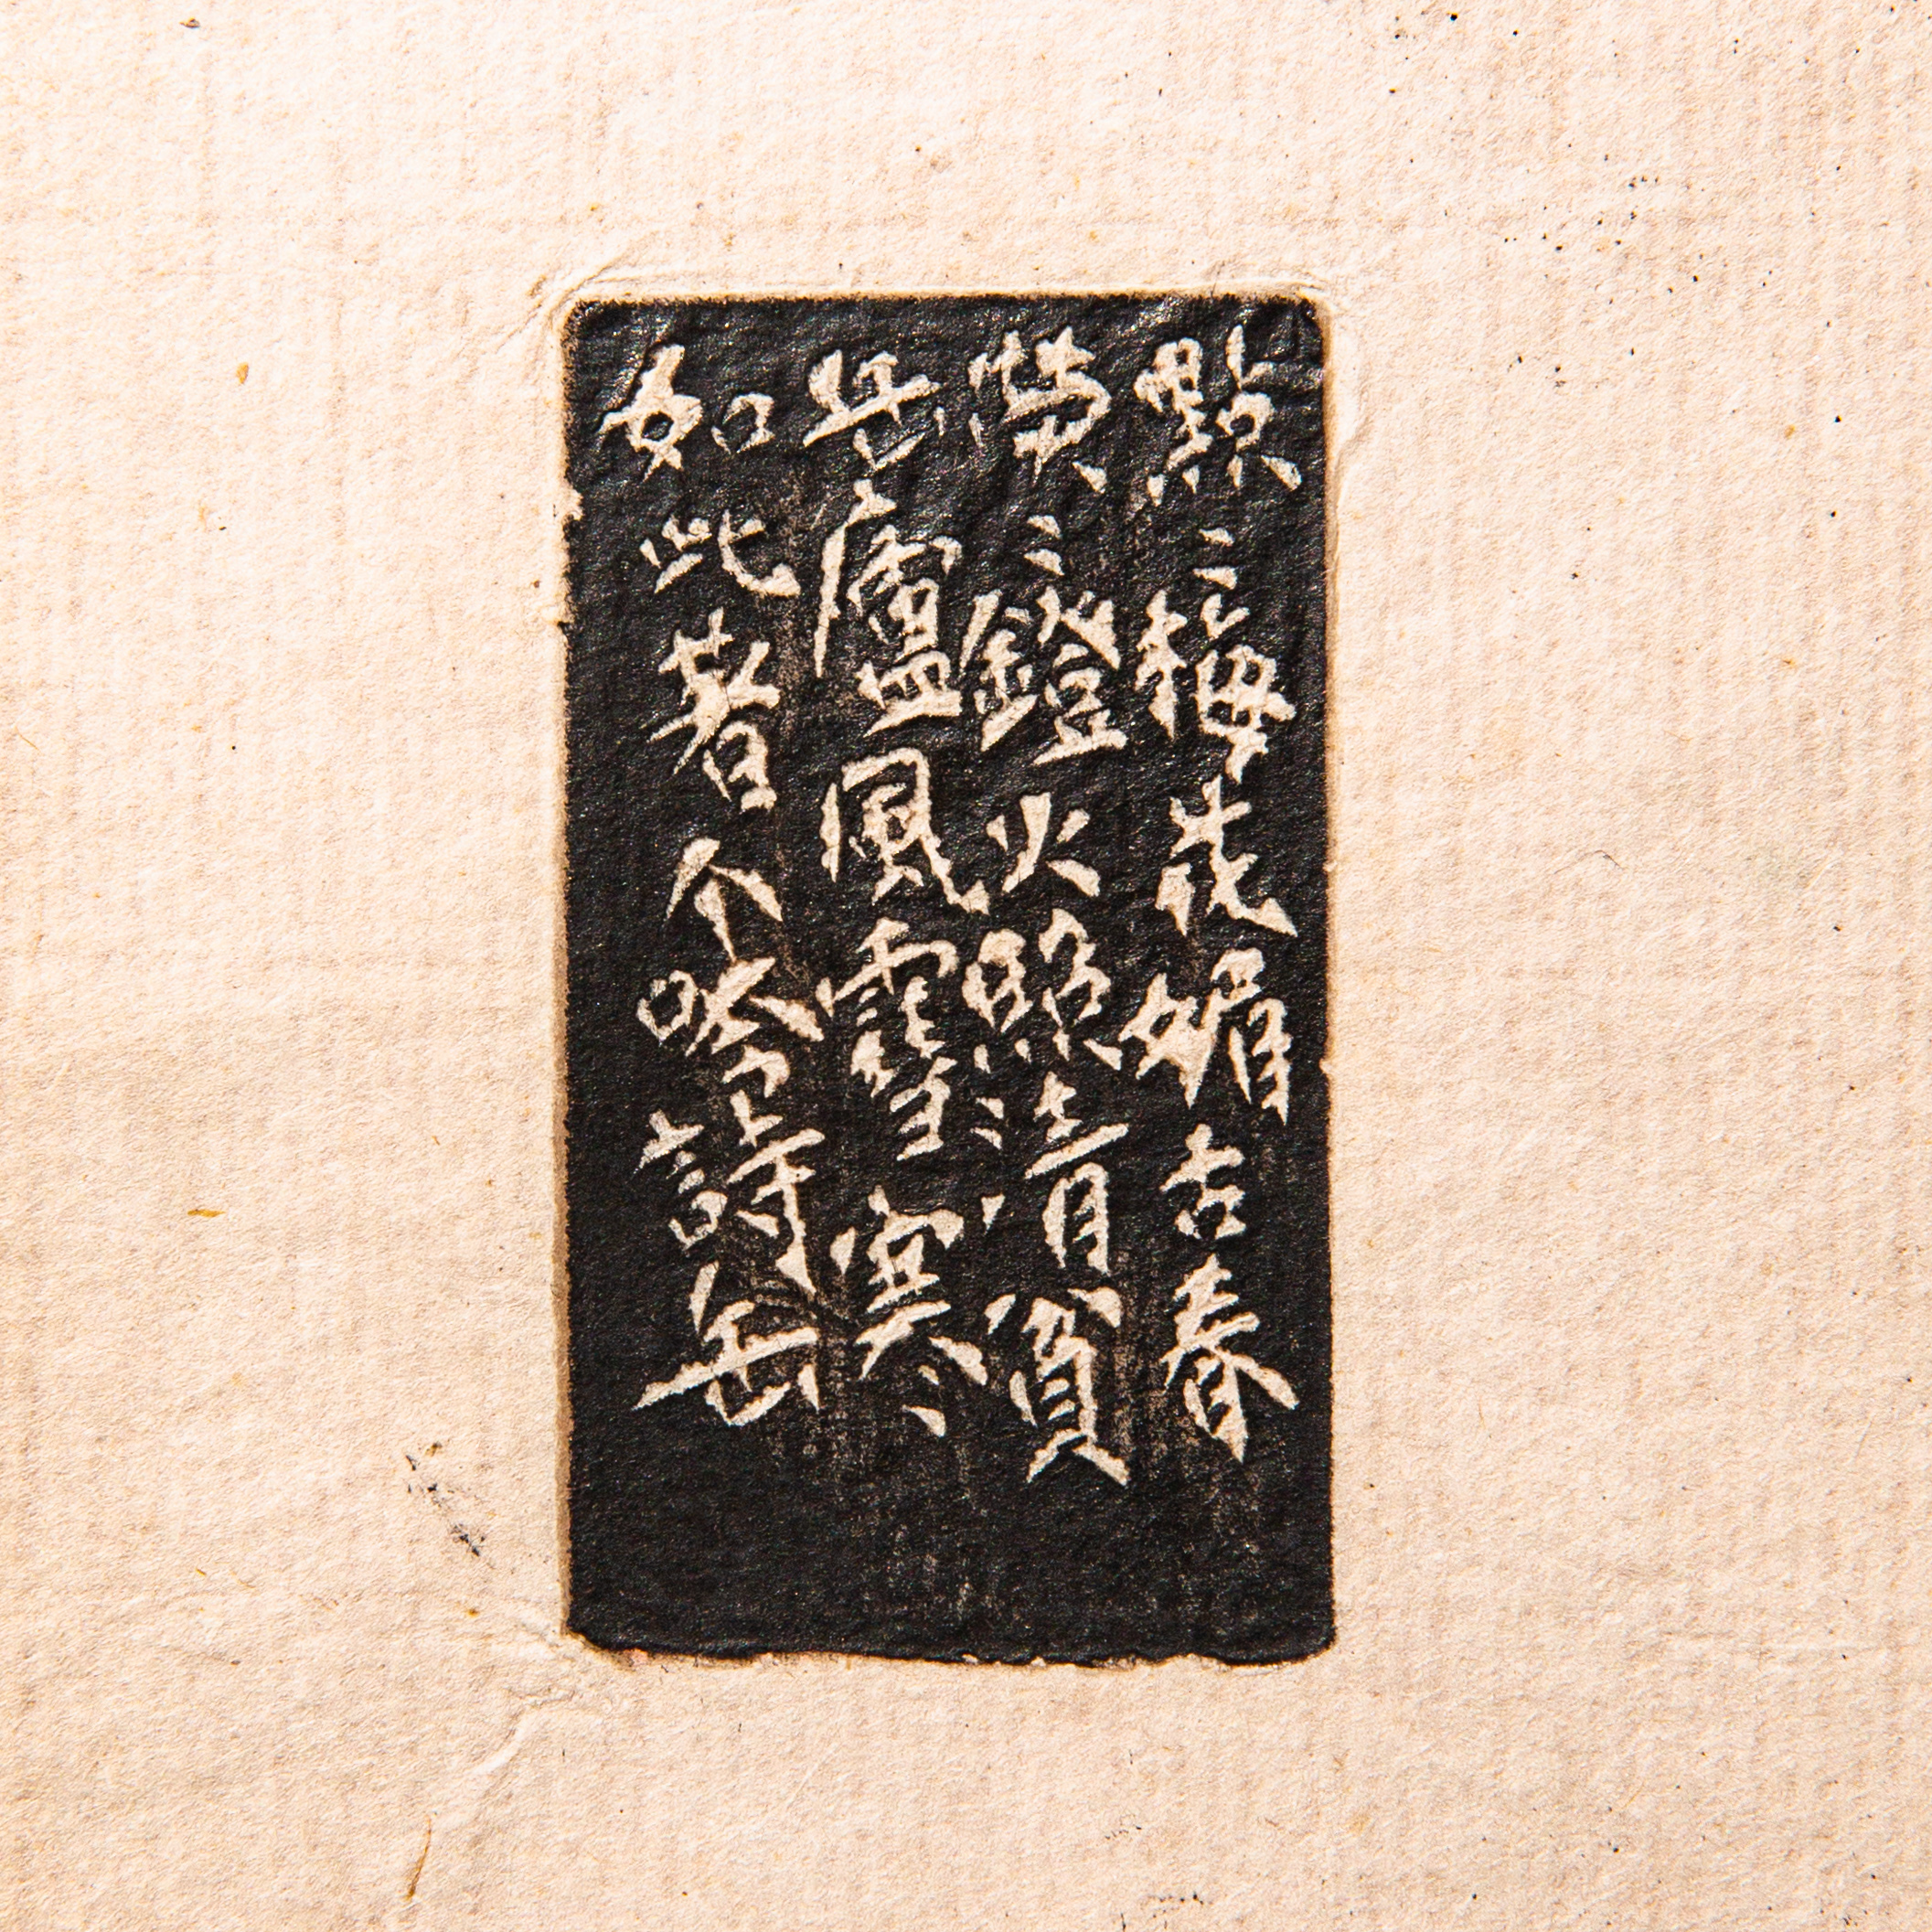 點〻梅花媚古春
熒〻鐙火照清貧
缶廬風雪寒
如此著个吟詩缶